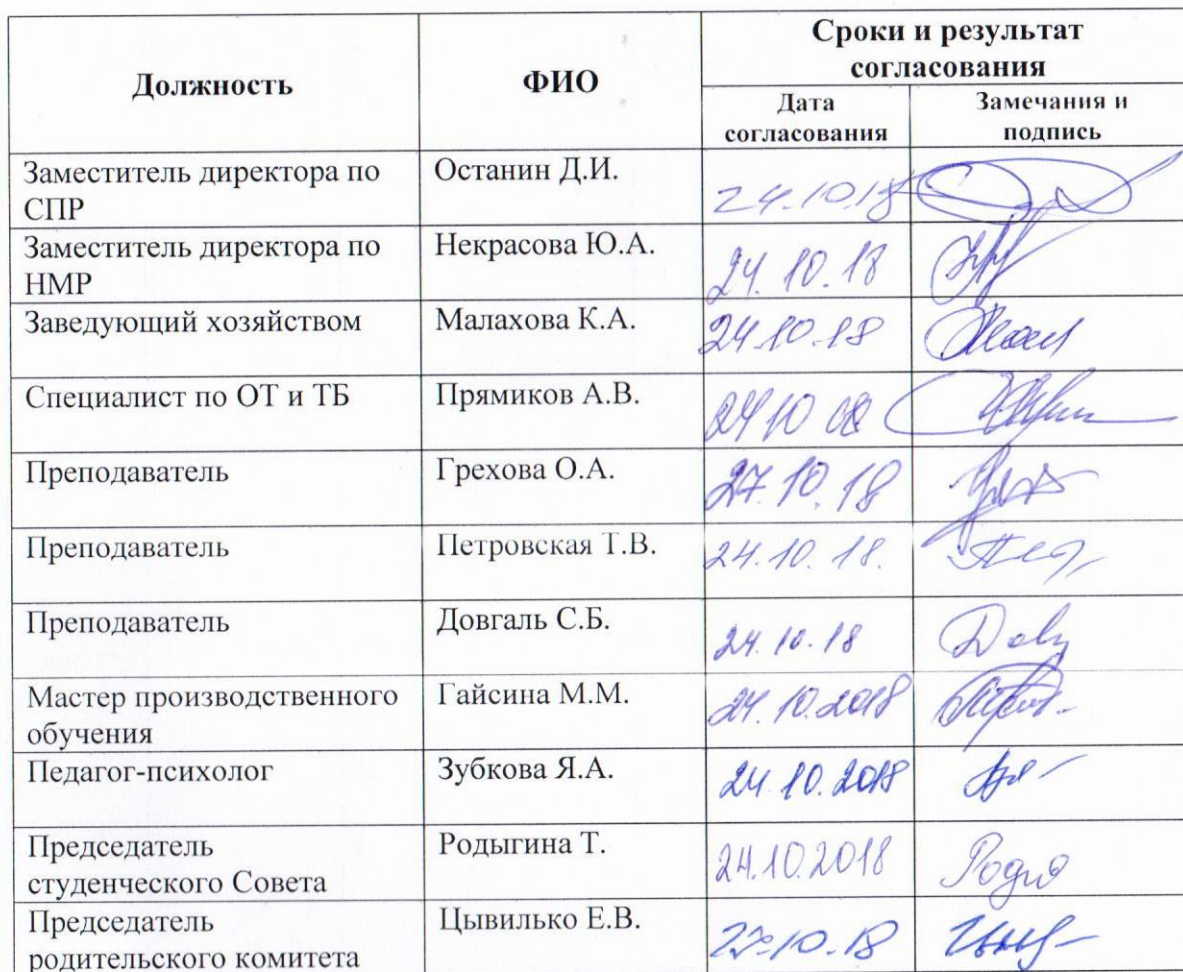 Должность
ФИО
Сроки и результат
согласования
Дата
согласования
Замечания и
подпись
Заместитель директора по
СПР
Останин Д.И.
24.10.18
Заместитель директора по
НМР
Некрасова Ю.А.
24.10.18
Заведующий хозяйством
Малахова К.А.
24.10.18
Специалист по ОТ и ТБ
Прямиков А.В.
24 10
Преподаватель
Грехова О.А.
27.10.18
Преподаватель
Петровская Т.В.
24.10.18.
Преподаватель
Довгаль С.Б.
24.10.18
Мастер производственного
обучения
Гайсина М.М.
24.10.2018
Педагог-психолог
Зубкова Я.А.
24.10.2018
Председатель
студенческого Совета
Родыгина Т.
24.10.2018
Председатель
родительского комитета
Цывилько Е.В.
27.10.18